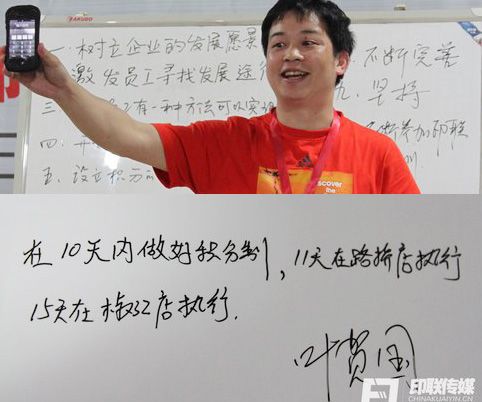 AKUBO
一、树立企业的发展愿景
激发员工寻找发展途
不断完善
九、坚持
三
有一种方法可以实现
四、
断参加印联
训
五、设立积分
Discover
the
在10天内做好积分制，11天在路桥店执行
15天在椒江店执行.
叶贺国
印联传媒
CHINAKUAIYIN.CN